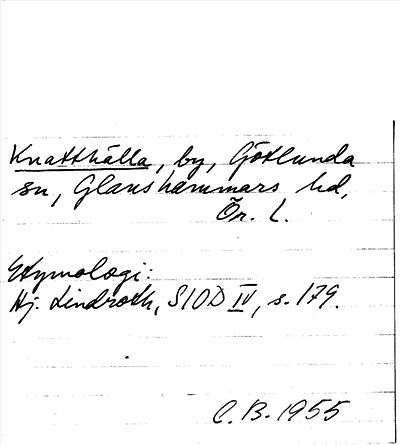 Knatthälla, by, Götlunda
sn, Glanshammars hd,
Ör. L.
Etymologi:
Hj. Lindroth, SIOD IV, s. 179.
C. B. 1955